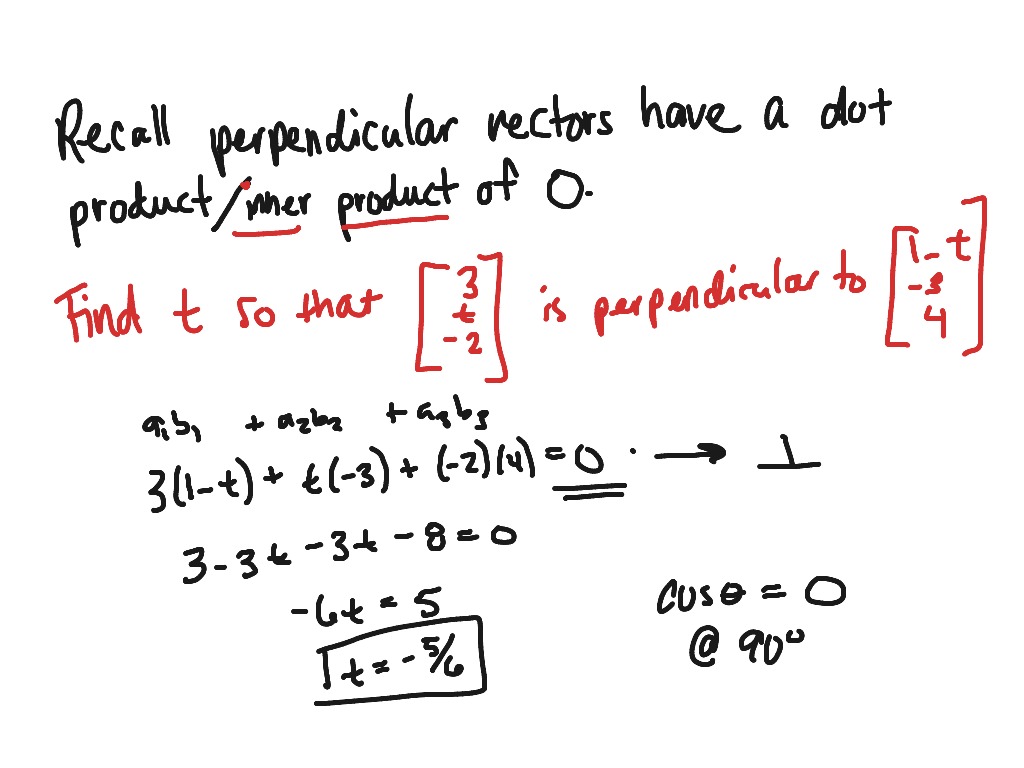 Recall perpendicular vectors have a dot
product/inner product of 0.
Find t so that [3 t -2] is perpendicular to [1-t -3 4]
a₁b₁ + a₂b₂ + a₃b₃
3(1-t) + t(-3) + (-2)(4) = 0 . → ⊥
3 - 3t - 3t - 8 = 0
-6t = 5
t = -5/6
cosθ = 0
@ 90°